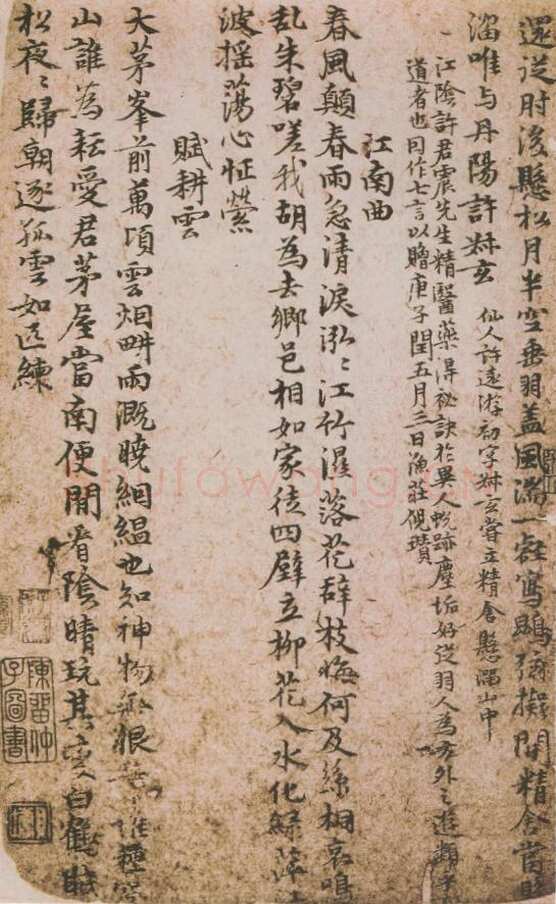 還從肘後懸松月半空垂羽蓋風濤一壑寫鵾弦擬開精舍當
溜唯与丹陽許㪷玄
仙人許遠游初字㪷玄嘗立精舍懸溜山中
江陰許君震先生精醫藥得祕訣於異人蛻跡塵垢好從羽人為方外之遊顓
道者也因作七言以贈庚子閏五月三日漁莊倪瓚
江南曲
春風顛春雨急清淚泓〻江竹濕落花辭枝悔何及絲桐哀鳴
亂朱碧嗟我胡為去鄉邑相如家徒四壁立柳花入水化綠萍
波搖蕩心怔縈
賦耕雲
大茅峯前萬頃雲烟畊雨溉曉絪縕也知神物無根
誰種
山誰為耘愛君茅屋當南便閒看陰晴玩其變白鶴
松夜〻歸朝逐孤雲如匹練
陳
子
圖書
shufawang.cn